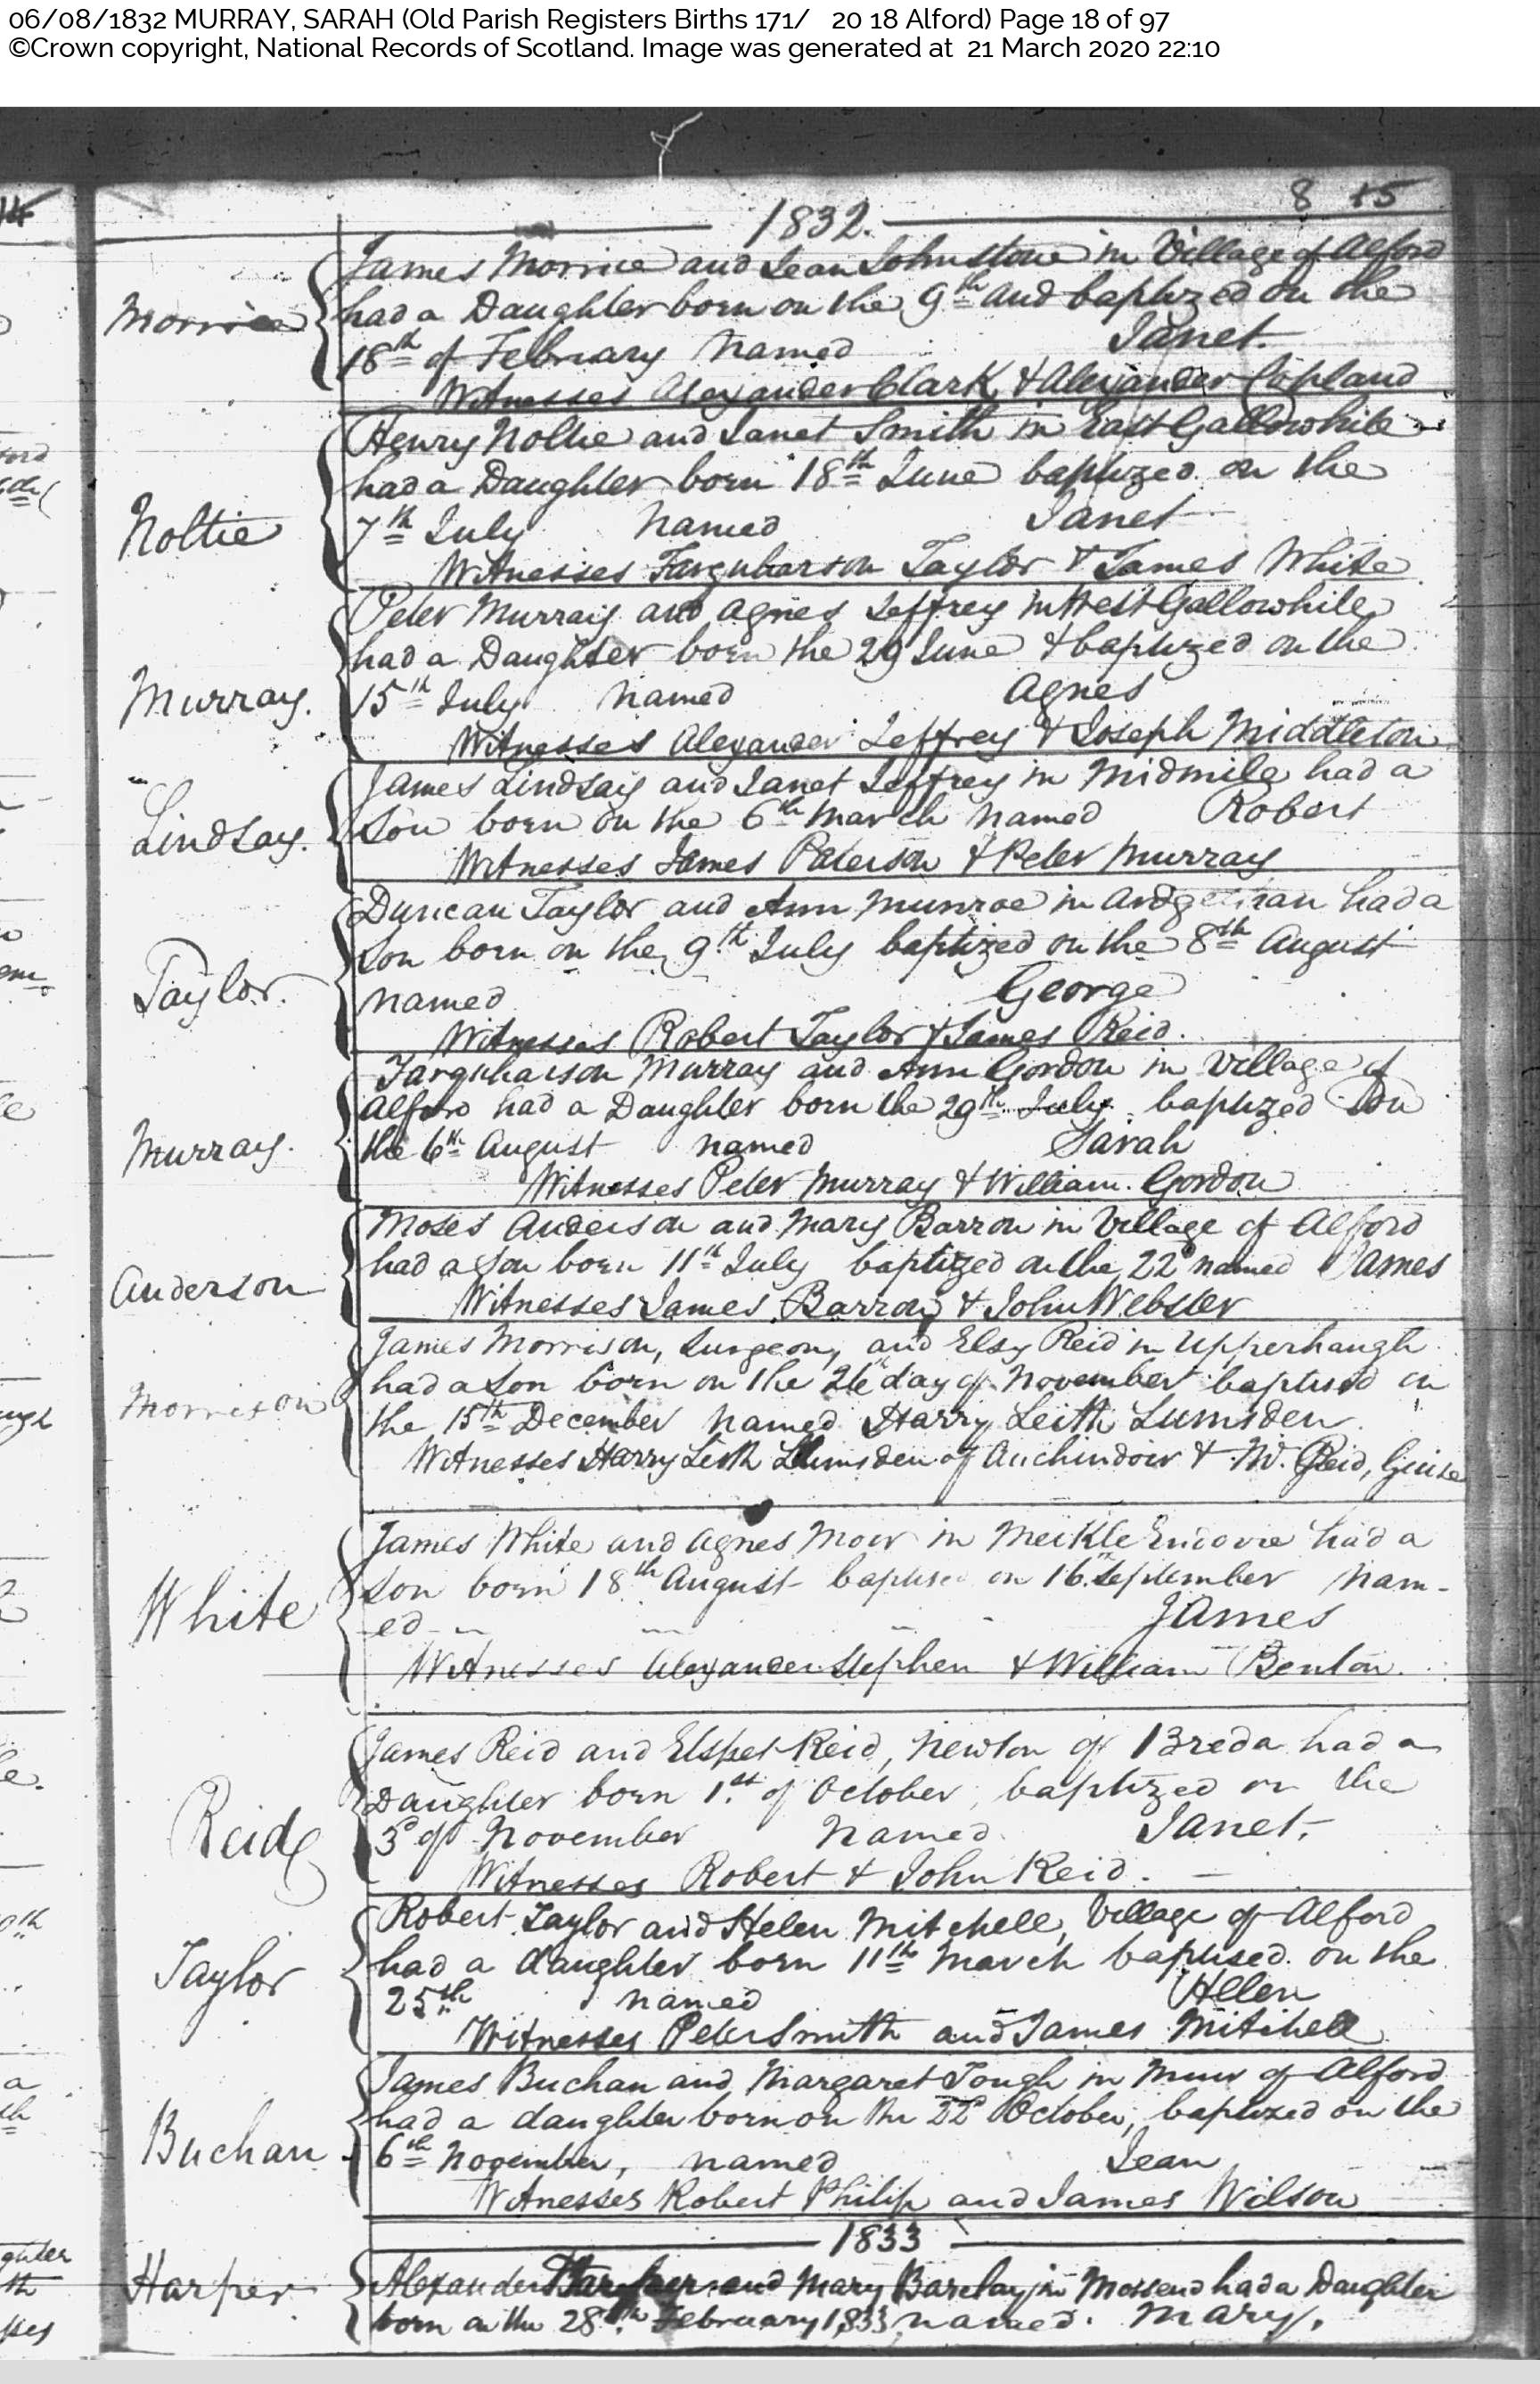 06/08/1832 MURRAY, SARAH (Old Parish Registers Births 171/ 20 18 Alford) Page 18 of 97
©Crown copyright, National Records of Scotland. Image was generated at 21 March 2020 22:10
14
8 15
1832.
James Morrice and Jean Johnstone in Village of Alford
Morrice
had a Daughter born on the 9th and baptized on the
18th of February named Janet.
Witnesses Alexander Clark & Alexander Copland
Henry Noltie and Janet Smith in East Gallowhill
had a Daughter born 18th June baptized on the
Noltie
7th July named Janet
Witnesses Farquharson Taylor & James White
Peter Murray and Agnes Jeffrey in West Gallowhill
had a Daughter born the 29 June & baptized on the
Murray.
15th July named Agnes
Witnesses Alexander Jeffrey & Joseph Middleton
James Lindsay and Janet Jeffrey in Midmile had a
Lindsay.
Son born on the 6th March named Robert
Witnesses James Paterson & Peter Murray
Duncan Taylor and Ann Munroe in had a
son born on the 9th July baptized on the 8th August
Taylor.
named George
Witnesses Robert Taylor & James Reid.
Farquharson Murray and Ann Gordon in Village of
Alford had a Daughter born the 29th July baptized on
Murray.
the 6th August named Sarah
Witnesses Peter Murray & William Gordon
Moses Anderson and Mary Barron in Village of Alford
had a Son born 11th July baptized on the 22d named James
Anderson
Witnesses James Barron & John Webster
James Morrison, Surgeon, and Elsy Reid in Upperhaugh
had a Son born on the 26th day of November baptised on
Morrison
the 15th December named Harry Leith Lumsden
Witnesses Harry Leith Lumsden of Auchindoir & Mr. Reid,
James White and Agnes Moir in Meikle Endovie had a
son born 18th August baptised on 16th September nam-
White
ed James
Witnesses Alexander Stephen & William Benton.
James Reid and Elspet Reid, Newton of Breda had a
Daughter born 1st of October, baptized on the
Reid
3d of November named Janet.
Witnesses Robert & John Reid.
Robert Taylor and Helen Mitchell, Village of Alford
had a daughter born 11th March baptised on the
Taylor
25th named Hellen
Witnesses Peter Smith and James Mitchell
James Buchan and Margaret Tough in Muir of Alford
had a daughter born on the 22d October, baptized on the
Buchan
6th November, named Jean
Witnesses Robert Philip and James Wilson
1833
Harper
Alexander Harper and Mary Barclay in Mossend had a Daughter
born on the 28th February 1833 named. Mary.